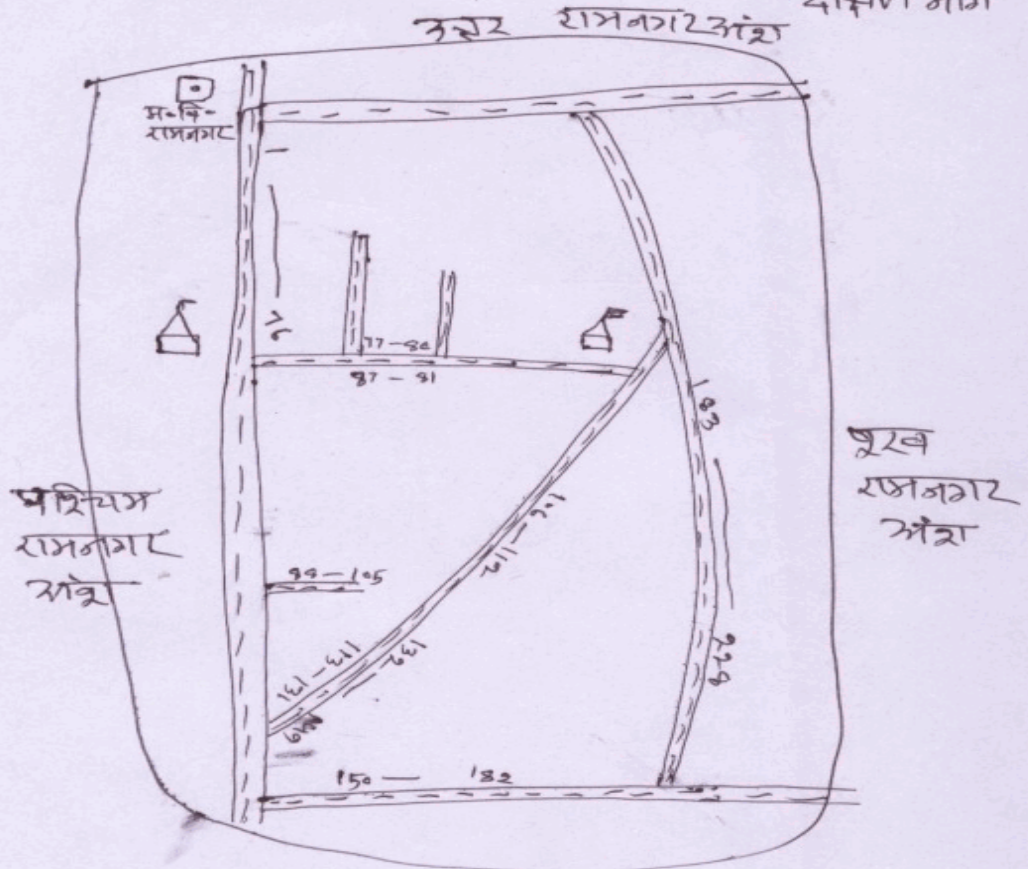 दक्षिण भाग
उत्तर रामनगर अंश
म-वि-
रामनगर
76
77-80
87-81
183
पुरब
रामनगर
अंश
पश्चिम
रामनगर
88-105
106-112
113-131
132
149
150 - 182